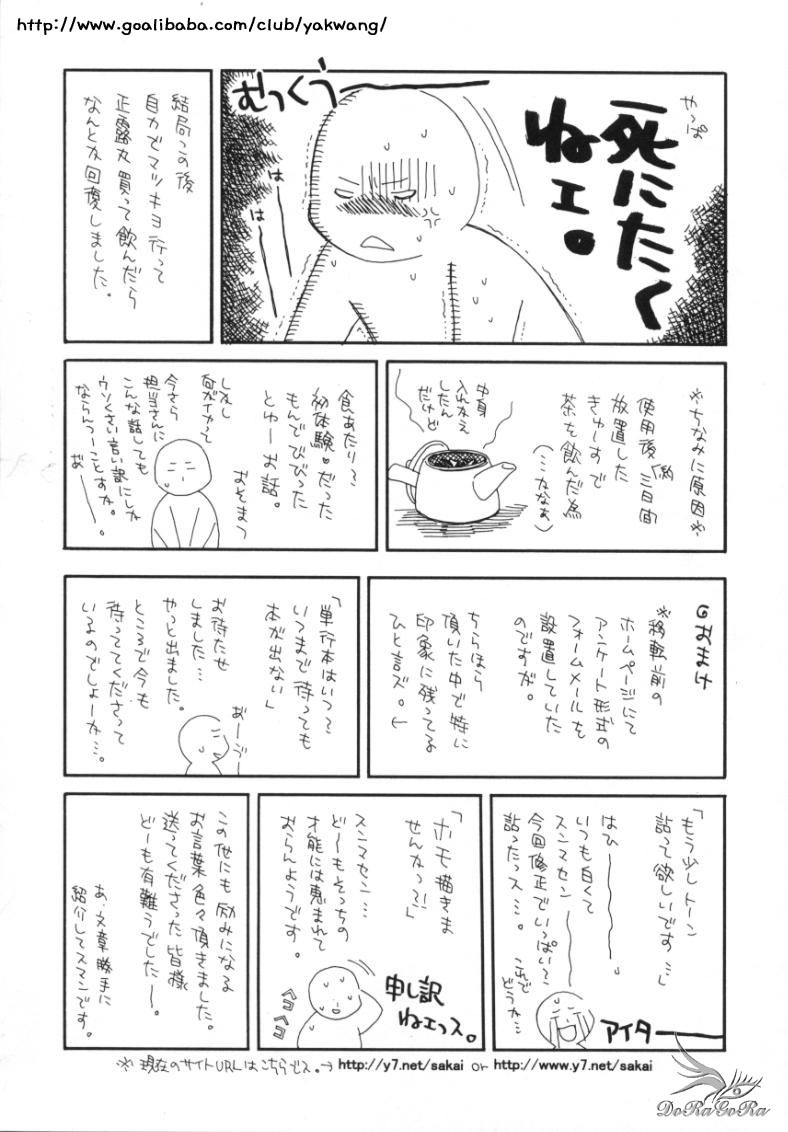 http://www.goalibaba.com/club/yakwang/
やっぱ
死にたく
ねェ。
むっくう
はー
はー
結局この後
自力でマツキヨ行って
正露丸買って飲んだら
なんとか回復しました。
※ちなみに原因※
使用後(約)三日間
放置した
きゅーすで
茶を飲んだ為
中身
入れかえ
したん
だけど
食あたり〜
初体験♥だった
もんでびびった
とゆーお話。
おそまつ
しかし
何がイヤって
今さら
担当さんに
こんな話しても
ウソくさい言い訳にしか
ならんつーことすか。
おー——。
おまけ
※移転前の
ホームページにて
アンケート形式の
フォームメールを
設置していた
のですが。
ちらほら
頂いた中で特に
印象に残ってる
ひと言ズ。↓
「単行本はいつ?
いつまで待っても
本が出ない」
お待たせ
しました…
やっと出ました。
ところで今も
待っててくださって
いるのでしょーか…。
おーぅー
「もう少しトーン
貼って欲しいです…」
はひ———。
いつも白くて
スンマセン———
今回修正でいっぱい〜
貼ったっス…。
これで
どうか…
アイター——
「ホモ描きま
せんかっ?!」
スンマセン…
ど〜もそっちの
才能には恵まれて
おらんようです。
ペコペコ
申し訳
ねェっス。
この他にも励みになる
お言葉色々頂きました。
送ってくださった皆様
どーも有難うでした—。
あ、文章勝手に
紹介してスマンです。
※現在のサイトURLはこちらでス。→ http://y7.net/sakai or http://www.y7.net/sakai
DoRaGoRa